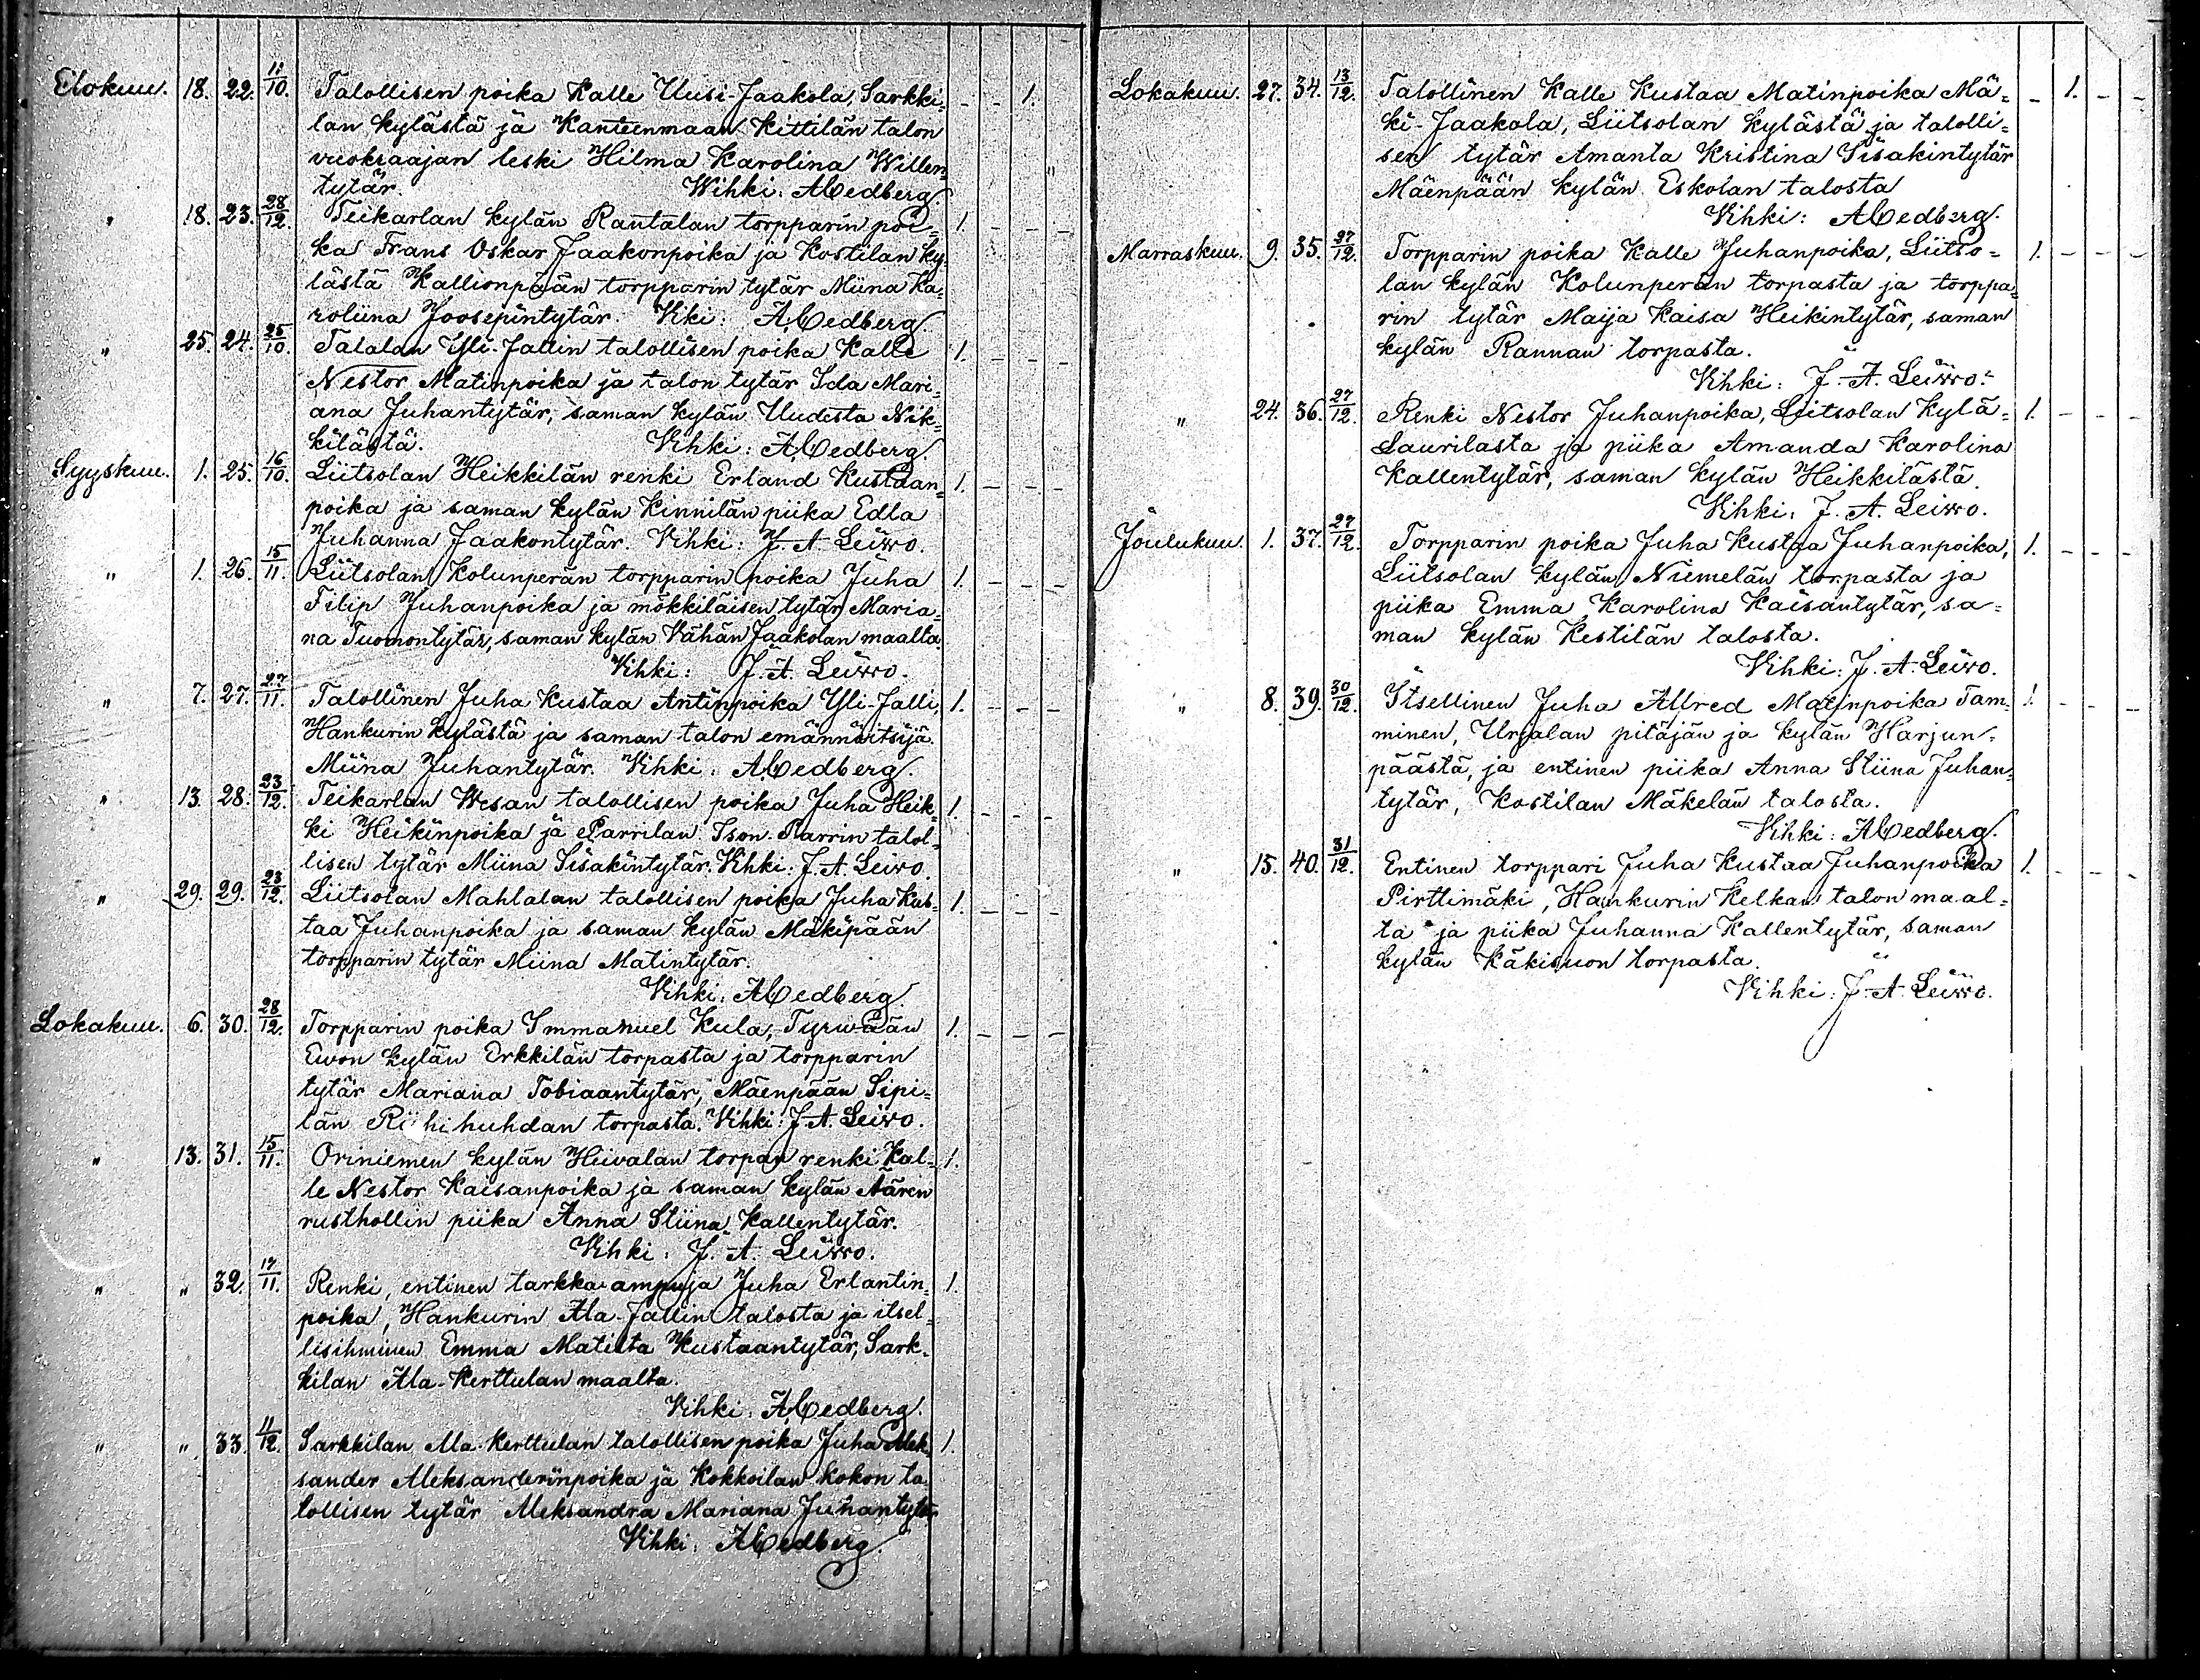 Elokuu. 18. 22. 11/10. Talollisen poika Kalle Uusi-Jaakola, Sarkki= - - 1.
lan kylästä ja Kanteenmaan Kittilän talon
vuokraajan leski Hilma Karolina Willen=
tytär. Wihki: A Cedberg.
" 18. 23. 28/12. Teikarlan kylän Rantalan torpparin poi= 1. - - -
ka Frans Oskar Jaakonpoika ja Kostilan ky=
lästä Kallionpään torpparin tytär Miina Ka=
roliina Joosepintytär. Vki: A Cedberg.
" 25. 24. 25/10. Talalan Yli-Jallin talollisen poika Kalle 1. - - -
Nestor Matinpoika ja talon tytär Ida Mari=
ana Juhantytär, saman kylän Uudesta Nik=
kilästä. Vihki: A Cedberg.
Syyskuu. 1. 25. 16/10. Liitsolan Heikkilän renki Erland Kustaan= 1. - - -
poika ja saman kylän Kinnilän piika Edla
Juhanna Jaakontytär. Vihki: J. A. Leiwo.
" 1. 26. 15/11. Liitsolan Kolunperän torpparin poika Juha 1. - - -
Filip Juhanpoika ja mökkiläisen tytär Maria=
na Tuomontytär, saman kylän Vähän Jaakolan maalta.
Vihki: J. A. Leiwo.
" 7. 27. 27/11. Talollinen Juha Kustaa Antinpoika Yli-Jalli, 1. - - -
Hankurin kylästä ja saman talon emännöitsijä
Miina Juhantytär. Vihki: A Cedberg.
" 13. 28. 23/12. Teikarlan Wesan talollisen poika Juha Heik= 1. - - -
ki Heikinpoika ja Parrilan Ison-Parrin talol=
lisen tytär Miina Iisakintytär. Vihki: J. A. Leiwo.
" 29. 29. 23/12. Liitsolan Mahlalan talollisen poika Juha Kus= 1. - - -
taa Juhanpoika ja saman kylän Mäkipään
torpparin tytär Miina Matintytär.
Vihki: A Cedberg.
Lokakuu. 6. 30. 28/12. Torpparin poika Immanuel Kula, Tyrwään 1. - - -
Ewon kylän Erkkilän torpasta ja torpparin
tytär Mariana Tobiaantytär, Mäenpään Sipi=
län Riihihuhdan torpasta. Vihki: J. A. Leiwo.
" 13. 31. 15/11. Oriniemen kylän Hiivalan torpan renki Kal= 1.
le Nestor Kaisanpoika ja saman kylän Äären
rusthollin piika Anna Stiina Kallentytär.
Vihki: J. A. Leiwo.
" " 32. 17/11. Renki, entinen tarkka-ampuja Juha Erlantin= 1.
poika, Hankurin Ala-Jallin talosta ja itsel=
lisihminen Emma Matilta Kustaantytär, Sark=
kilan Ala-Kerttulan maalta.
Vihki: A Cedberg.
" " 33. 11/12. Sarkkilan Ala-Kerttulan talollisen poika Juha Alek= 1.
sander Aleksanderinpoika ja Kokkoilan Kokon ta=
lollisen tytär Aleksandra Mariana Juhantytär.
Vihki: A Cedberg.
Lokakuu. 27. 34. 13/12. Talollinen Kalle Kustaa Matinpoika Mä= - 1. - -
ki-Jaakola, Liitsolan kylästä ja talolli=
sen tytär Amanta Kristina Iisakintytär
Mäenpään kylän Eskolan talosta
Vihki: A Cedberg.
Marraskuu. 9. 35. 27/12. Torpparin poika Kalle Juhanpoika, Liitso= 1. - - -
lan kylän Kolunperän torpasta ja torppa=
rin tytär Maija Kaisa Heikintytär, saman
kylän Rannan torpasta.
Vihki: J. A. Leiwo.
" 24. 36. 27/12. Renki Nestor Juhanpoika, Liitsolan Kylä= 1. - - -
Laurilasta ja piika Amanda Karolina
Kallentytär, saman kylän Heikkilästä.
Vihki: J. A. Leiwo.
Joulukuu. 1. 37. 27/12. Torpparin poika Juha Kustaa Juhanpoika, 1. - - -
Liitsolan kylän Niemelän torpasta ja
piika Emma Karolina Kaisantytär, sa=
man kylän Kestilän talosta.
Vihki: J. A. Leiwo.
" 8. 39. 30/12. Itsellinen Juha Alfred Matinpoika Tam= 1. - - -
minen, Urjalan pitäjän ja kylän Harjun=
päästä, ja entinen piika Anna Stiina Juhan=
tytär, Kostilan Mäkelän talosta.
Vihki: A Cedberg.
" 15. 40. 31/12. Entinen torppari Juha Kustaa Juhanpoika 1. - - -
Pirttimäki, Hankurin Kelkan talon maal=
ta ja piika Juhanna Kallentytär, saman
kylän Käkisuon torpasta.
Vihki: J. A. Leiwo.